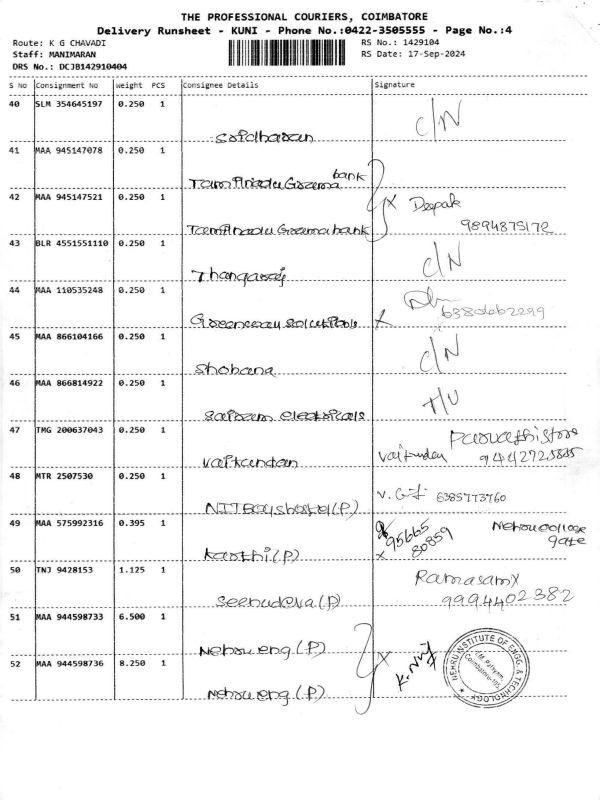 THE PROFESSIONAL COURIERS, COIMBATORE
Delivery Runsheet - KUNI - Phone No.:0422-3505555 - Page No.:4
Route: K G CHAVADI
RS No.: 1429104
Staff: MANIMARAN
RS Date: 17-Sep-2024
DRS No.: DCJB142910404
S No Consignment No Weight PCS Consignee Details Signature
40 SLM 354645197 0.250 1
C/N
41 MAA 945147078 0.250 1
bank
42 MAA 945147521 0.250 1
Deepak
9894875172
43 BLR 4551551110 0.250 1
Thangaraj
C/N
44 MAA 110535248 0.250 1
x
45 MAA 866104166 0.250 1
Shobana
C/N
46 MAA 866814922 0.250 1
T/U
47 TMG 200637043 0.250 1
48 MTR 2507530 0.250 1
6385773760
49 MAA 575992316 0.395 1
95665
80859
Karthi (P)
x
gate
50 TNJ 9428153 1.125 1
Ramasamy
9994402382
51 MAA 944598733 6.500 1
Nehru eng (P)
52 MAA 944598736 8.250 1
Nehru eng (P)
NEHRU INSTITUTE OF ENGG. & TECHNOLOGY
Coimbatore-105